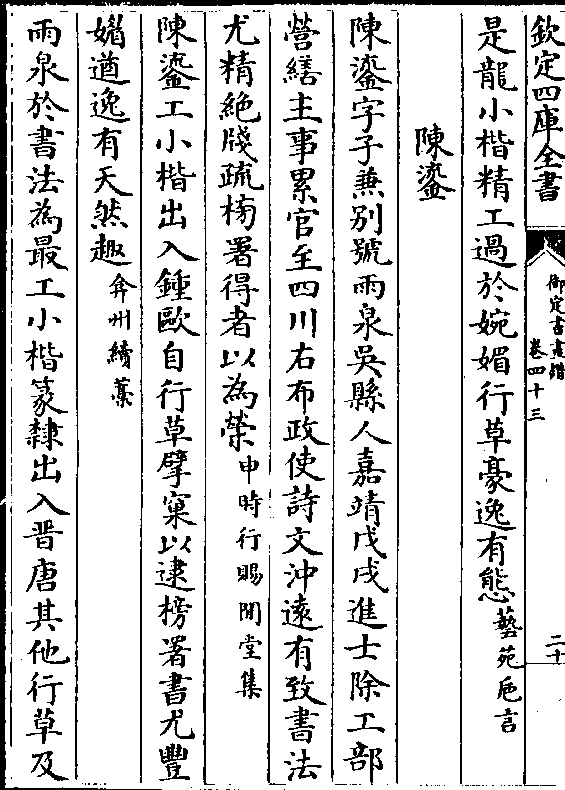 欽定四庫全書
御定書畫譜
卷四十三
二十
是龍小楷精工過於婉媚行草豪逸有態藝苑巵言
陳鎏
陳鎏字子兼别號雨泉吳縣人嘉靖戊戌進士除工部
營繕主事累官至四川右布政使詩文沖遠有致書法
尤精絶牋疏榜署得者以為榮申時行賜閒堂集
陳鎏工小楷出入鍾歐自行草擘窠以逮榜署書尤豐
媚遒逸有天然趣弇州續藁
雨泉於書法為最工小楷篆隸出入晋唐其他行草及